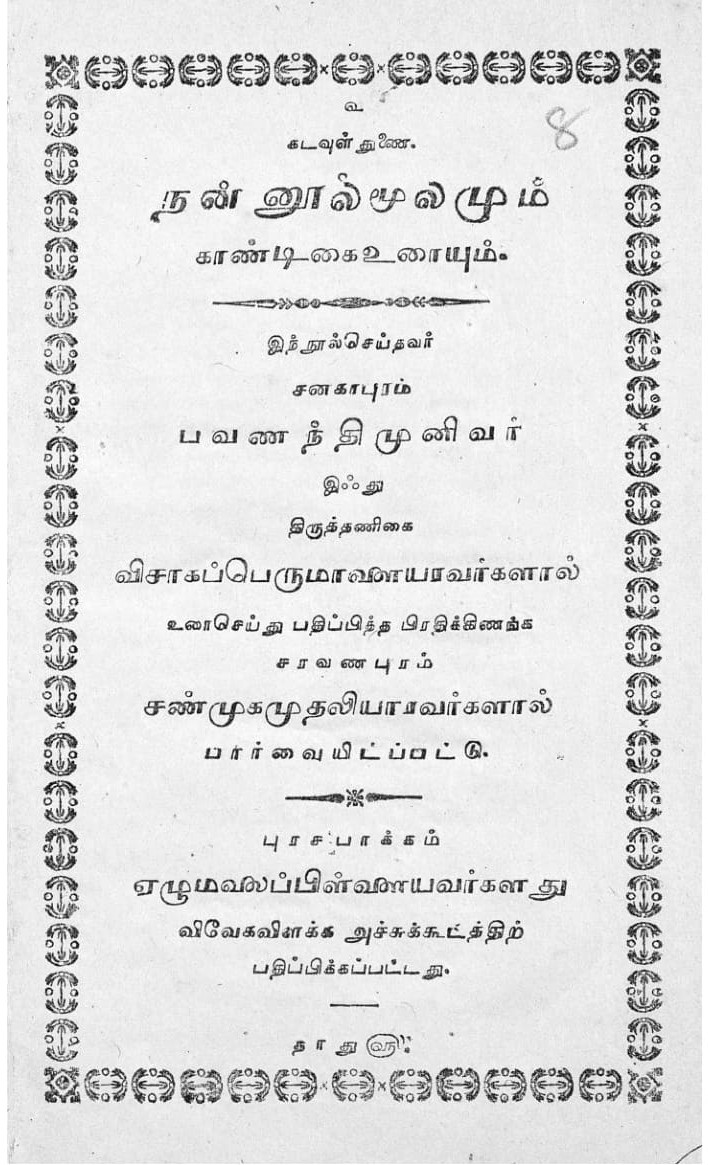 உ
8
கடவுள் துணை.
நன்னூல்மூலமும்
காண்டிகைஉரையும்.
இந்நூல்செய்தவர்
சனகாபுரம்
பவணந்திமுனிவர்
இஃது
திருத்தணிகை
விசாகப்பெருமாளையரவர்களால்
உரைசெய்து பதிப்பித்த பிரதிக்கிணங்க
சரவணபுரம்
சண்முகமுதலியாரவர்களால்
பார்வையிட்ப்பட்டு.
புரசபாக்கம்
ஏழுமலைப்பிள்ளையவர்களது
விவேகவிளக்க அச்சுக்கூடத்திற்
பதிப்பிக்கப்பட்டது.
தாது௵